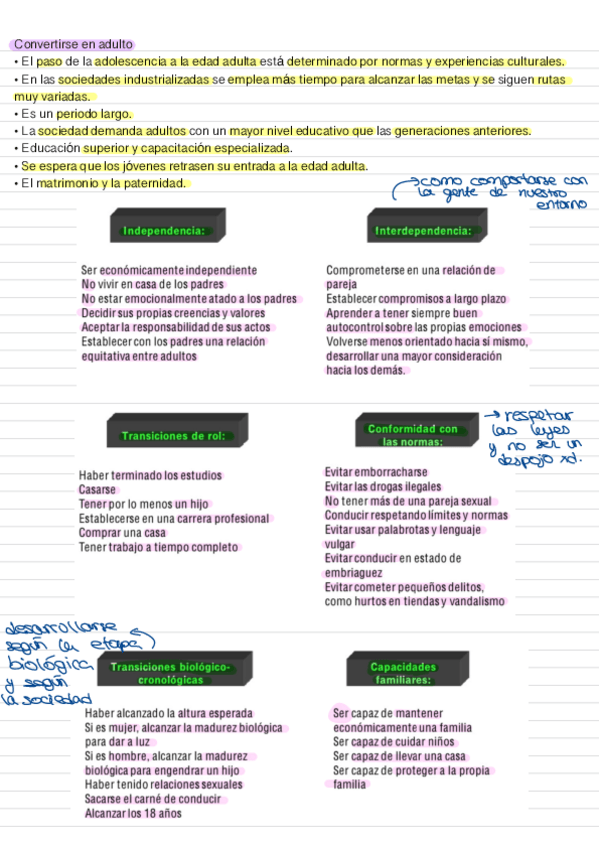 Convertirse en adulto
• El paso de la adolescencia a la edad adulta está determinado por normas y experiencias culturales.
• En las sociedades industrializadas se emplea más tiempo para alcanzar las metas y se siguen rutas
muy variadas.
• Es un periodo largo.
• La sociedad demanda adultos con un mayor nivel educativo que las generaciones anteriores.
• Educación superior y capacitación especializada.
• Se espera que los jóvenes retrasen su entrada a la edad adulta.
• El matrimonio y la paternidad.
como comportarse con
la gente de nuestro
entorno
Independencia:
Ser económicamente independiente
No vivir en casa de los padres
No estar emocionalmente atado a los padres
Decidir sus propias creencias y valores
Aceptar la responsabilidad de sus actos
Establecer con los padres una relación
equitativa entre adultos
Interdependencia:
Comprometerse en una relación de
pareja
Establecer compromisos a largo plazo
Aprender a tener siempre buen
autocontrol sobre las propias emociones
Volverse menos orientado hacia sí mismo,
desarrollar una mayor consideración
hacia los demás.
Transiciones de rol:
Haber terminado los estudios
Casarse
Tener por lo menos un hijo
Establecerse en una carrera profesional
Comprar una casa
Tener trabajo a tiempo completo
Conformidad con
las normas:
respetar
las leyes
y no ser un
despojo xd.
Evitar emborracharse
Evitar las drogas ilegales
No tener más de una pareja sexual
Conducir respetando límites y normas
Evitar usar palabrotas y lenguaje
vulgar
Evitar conducir en estado de
embriaguez
Evitar cometer pequeños delitos,
como hurtos en tiendas y vandalismo
desarrollarse
según la etapa
biológica
y según
la sociedad
Transiciones biológico-
cronológicas
Haber alcanzado la altura esperada
Si es mujer, alcanzar la madurez biológica
para dar a luz
Si es hombre, alcanzar la madurez
biológica para engendrar un hijo
Haber tenido relaciones sexuales
Sacarse el carné de conducir
Alcanzar los 18 años
Capacidades
familiares:
Ser capaz de mantener
económicamente una familia
Ser capaz de cuidar niños
Ser capaz de llevar una casa
Ser capaz de proteger a la propia
familia